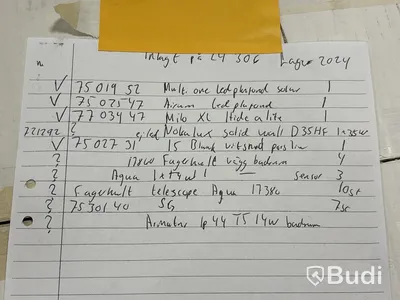 n. Inlagt på L4 306 Lagre 2024
✓ 75 019 52 Multi one led plafond solar 1
✓ 75 025 47 Airam led plafond 1
✓ 77 034 47 Milo XL 1
721292 ? Nokalux solid wall D35HF
✓ 75 027 31 15 Blank vitsand 1
? 17860 Fagerhult vägg badrum 4
? Aqua 1x14w ! — sensor 3
? Fagerhult telescope Aqua 17380 10st
? 75 301 40 SG 7st
? Armatur Ip 44 T5 14w badrum
Budi